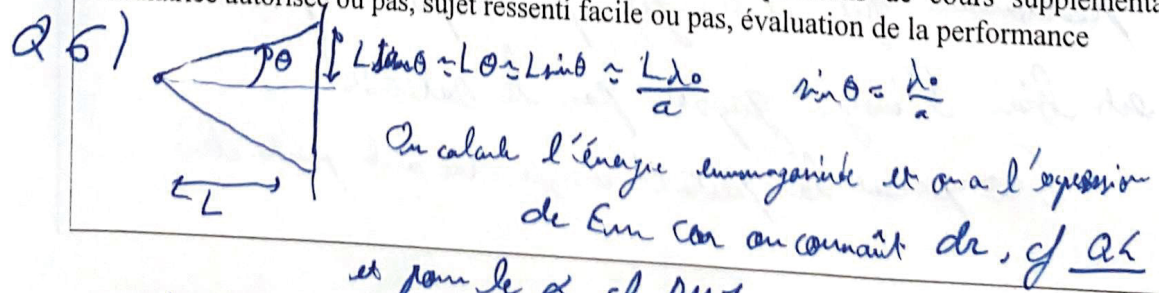 ou pas, sujet ressenti facile ou pas, évaluation de la performance
Q6) θ L tanθ ≈ Lθ ≈ L sinθ ≈ Lλ₀/a sinθ = λ₀/a
L
On calcule l'énergie emmagasinée et on a l'expression
de Em car on connaît dr, cf
et pour le α cf